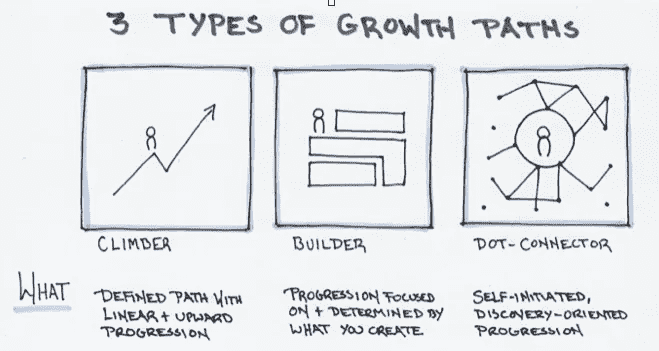 3 TYPES OF GROWTH PATHS
CLIMBER
BUILDER
DOT-CONNECTOR
WHAT
DEFINED PATH WITH
LINEAR + UPWARD
PROGRESSION
PROGRESSION FOCUSED
ON + DETERMINED BY
WHAT YOU CREATE.
SELF-INITIATED,
DISCOVERY-ORIENTED
PROGRESSION